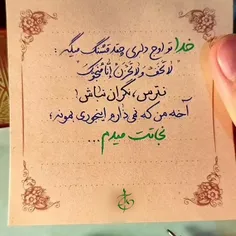 خدا تو اوج دلبری چه قشنگ میگه :
"لا تَخَفْ وَ لا تَحْزَنْ إِنَّا مُنَجُّوكَ"
نترس، نگران نباش!
آخه من که نمی ذارم اینجوری بمونه؛
نجاتت میدم...